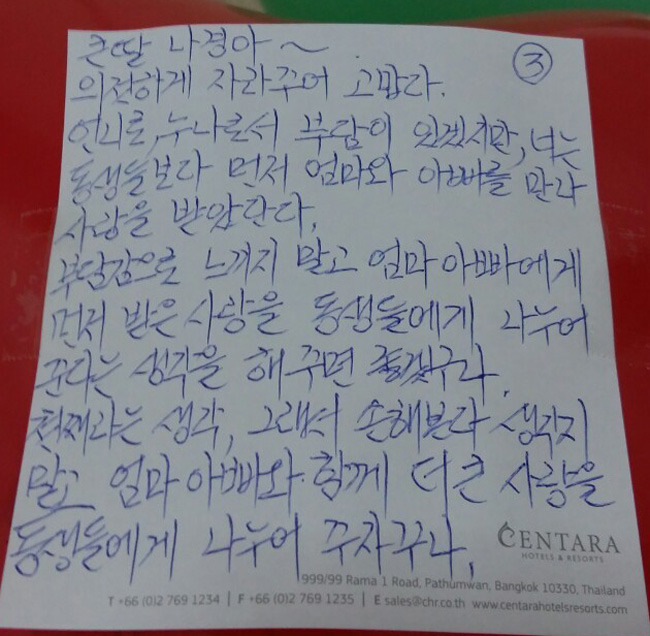 큰딸 나경아~
③
의젓하게 자라주어 고맙다.
언니로, 누나로서 부담이 있겠지만, 너는
동생들보다 먼저 엄마와 아빠를 만나
사랑을 받았단다.
부담감으로 느끼지 말고 엄마 아빠에게
먼저 받은 사랑을 동생들에게 나누어
준다는 생각을 해 주면 좋겠구나.
첫째라는 생각, 그래서 손해본다 생각지
말고 엄마 아빠와 함께 더 큰 사랑을
동생들에게 나누어 주자꾸나.
CENTARA
HOTELS & RESORTS
999/99 Rama 1 Road, Pathumwan, Bangkok 10330, Thailand
T +66 (0)2 769 1234 | F +66 (0)2 769 1235 | E sales@chr.co.th www.centarahotelsresorts.com